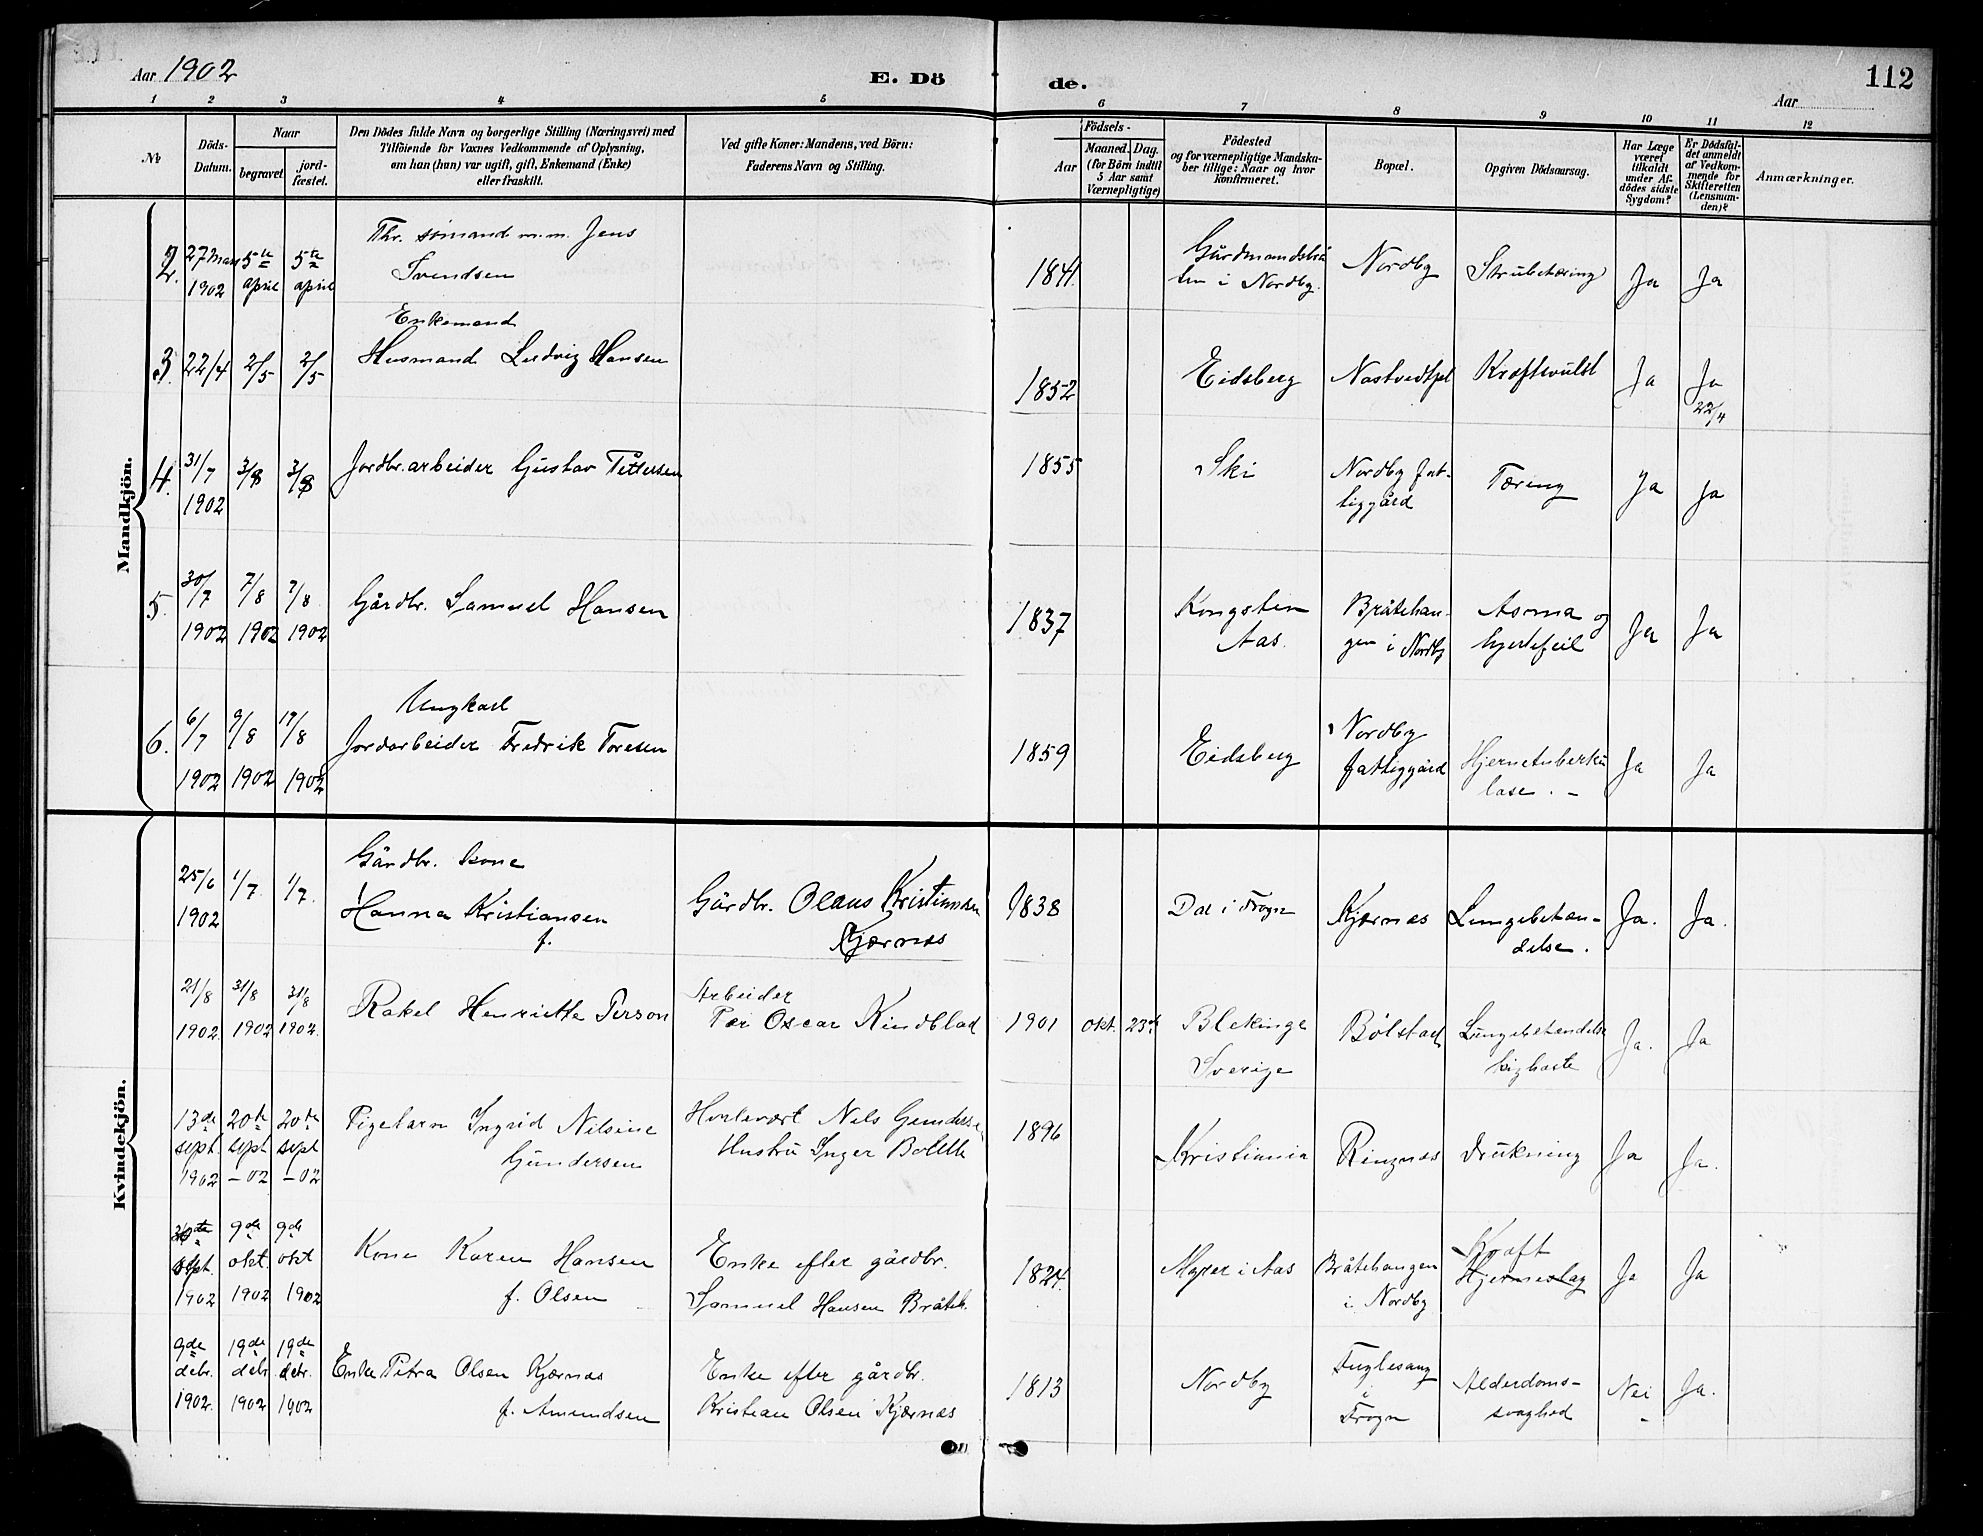 Aar 1902
E. Dö
de.
Aar
112
1 2 3 4 5 6 7 8 9 10 11 12
№
Döds-Datum.
Naar
begravet
jord-fæstet.
Den Dödes fulde Navn og borgerlige Stilling (Næringsvei) med
Tilföiende for Voxnes Vedkommende af Oplysning,
om han (hun) var ugift, gift, Enkemand (Enke)
eller fraskilt.
Ved gifte Koner: Mandens, ved Börn:
Faderens Navn og Stilling.
Födsels-
Aar
Maaned. Dag.
(for Börn indtil
5 Aar samt
Værnepligtige)
Födested
og for værnepligtige Mandska-
ber tillige: Naar og hvor
konfirmeret.
Bopæl.
Opgiven Dödsaarsag.
Har Læge
været
tilkaldt
under Af-
dödes sidste
Sygdom?
Er Dödsfal-
det anmeldt
af Vedkom-
mende for
Skifteretten
(Lensman-
den)?
Anmærkninger.
Mandkjön.
2. 27 Mars 1902 5te april 5te april
Fhv. sømand m.m. Jens
Svendsen
Enkemand
1841. i Nordby. Nordby Strubetæring Ja Ja
3. 22/4 2/5 2/5
Husmand Ludvig Hansen
1852 Eidsberg Nostvedtpl Kræftsvulst Ja Ja 22/4
4. 31/7 1902 3/8 3/8
Jordbr.arbeider Gustav Pettersen
1855 Ski Nordby fat-
tiggård Tæring Ja Ja
5. 30/7 1902 7/8 1902 7/8 1902
Gårdbr. Samuel Hansen
1837 Kongsten
Aas. Bråtehau-
gen i Nordby Asma og
hjertefeil Ja Ja
6. 6/7 1902 9/8 1902 17/8 1902
Ungkarl
Jordarbeider Fredrik Toresen
1859 Eidsberg Nordby
fattiggård Hjernetuberku
lose. – Ja Ja
Kvindekjön.
25/6 1902 1/7 1/7.
Gårdbr. kone
Hanna Kristiansen
f.
Gårdbr. Olaus Kristiansen
Kjærnes
1838 Dal i Frogn Kjærnes Lungebetæn-
delse. Ja. Ja.
21/8 1902 31/8 1902 31/8 1902.
Rakel Henriette Person
Arbeider
Per Oscar Kindblad
1901 Okt. 23de Blekinge
Sverige Bölstad Lungebetændelse
kighoste Ja. Ja
13de sept. 1902 20de sept –02 20de sept –02
Pigebarn Ingrid Nilsine
Gundersen
Nils Gunderse
Hustru Inger Bolette
1896 Kristiania Ringnes Drukning Ja Ja.
sept. 1902 9de okt. 1902 9de okt 1902
Kone Karen Hansen
f. Olsen
Enke efter gårdbr.
Samuel Hansen Bråteh.
1824. Myrer i Aas Bråtehaugen
i Nordby Kræft
Hjerneslag Ja Ja
9de decbr. 1902. 19de decbr 1902 19de decbr. 1902
Enke Petra Olsen Kjærnes
f. Amundsen
Enke efter gårdbr.
Kristian Olsen Kjærnes
1813 Nordby Fuglesang
i
Frogn Alderdoms-
svaghed Nei Ja.